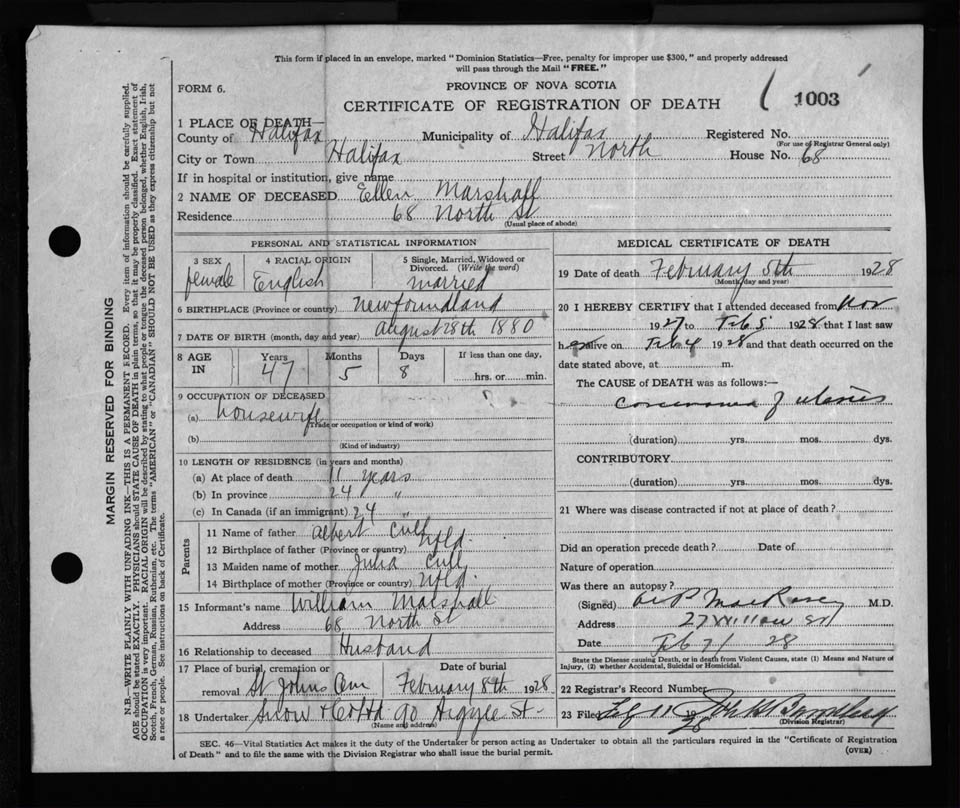 This form if placed in an envelope, marked "Dominion Statistics—Free, penalty for improper use $300," and properly addressed
will pass through the Mail "FREE."
FORM 6.
PROVINCE OF NOVA SCOTIA
CERTIFICATE OF REGISTRATION OF DEATH
1003
1 PLACE OF DEATH—
County of Halifax Municipality of Halifax Registered No.
(For use of Registrar General only)
City or Town Halifax Street North House No. 68
If in hospital or institution, give name
2 NAME OF DECEASED Ellen Marshall
Residence 68 North St
(Usual place of abode)
PERSONAL AND STATISTICAL INFORMATION
3 SEX 4 RACIAL ORIGIN 5 Single, Married, Widowed or
Divorced. (Write the word)
female English married
6 BIRTHPLACE (Province or country) Newfoundland
7 DATE OF BIRTH (month, day and year) August 28th 1880
8 AGE IN Years Months Days If less than one day,
47 5 8 hrs. or min.
9 OCCUPATION OF DECEASED
(a) housewife
(Trade or occupation or kind of work)
(b)
(Kind of industry)
10 LENGTH OF RESIDENCE (in years and months)
(a) At place of death 11 years
(b) In province 24 "
(c) In Canada (if an immigrant) 24 "
Parents
11 Name of father Albert Cull
12 Birthplace of father (Province or country) Nfld.
13 Maiden name of mother Julia Cull
14 Birthplace of mother (Province or country) Nfld.
15 Informant's name William Marshall
Address 68 North St
16 Relationship to deceased Husband
17 Place of burial, cremation or Date of burial
removal St Johns Cem February 8th 1928
18 Undertaker Snow & Co Ltd 90 Argyle St
(Name and address)
MEDICAL CERTIFICATE OF DEATH
19 Date of death February 5th 1928
(Month, day and year)
20 I HEREBY CERTIFY that I attended deceased from Nov
1927 to Feb 5 1928 that I last saw
her alive on Feb 4 1928 and that death occurred on the
date stated above, at m.
The CAUSE of DEATH was as follows:—
carcinoma of uterus
(duration) yrs. mos. dys.
CONTRIBUTORY
(duration) yrs. mos. dys.
21 Where was disease contracted if not at place of death?
Did an operation precede death? Date of
Nature of operation
Was there an autopsy?
(Signed) M.D.
Address 27 Willow St
Date Feb 7/ 28
State the Disease causing Death, or in death from Violent Causes, state (1) Means and Nature of
Injury, (2) whether Accidental, Suicidal or Homicidal.
22 Registrar's Record Number
23 Filed Feb 11 1928
(Division Registrar)
SEC. 46—Vital Statistics Act makes it the duty of the Undertaker or person acting as Undertaker to obtain all the particulars required in the "Certificate of Registration
of Death" and to file the same with the Division Registrar who shall issue the burial permit.
(OVER)
MARGIN RESERVED FOR BINDING
N.B.—WRITE PLAINLY WITH UNFADING INK—THIS IS A PERMANENT RECORD. Every item of information should be carefully supplied.
AGE should be stated EXACTLY. PHYSICIANS should STATE CAUSE OF DEATH in plain terms, so that it may be properly classified. Exact statement of
OCCUPATION is very important. RACIAL ORIGIN will be described by stating to what people or tongue the deceased person belonged, whether English, Irish,
Scotch, French, German, Russian, Ruthenian, etc. The terms "AMERICAN" or "CANADIAN" SHOULD NOT BE USED as they express citizenship but not
a race or people. See instructions on back of Certificate.